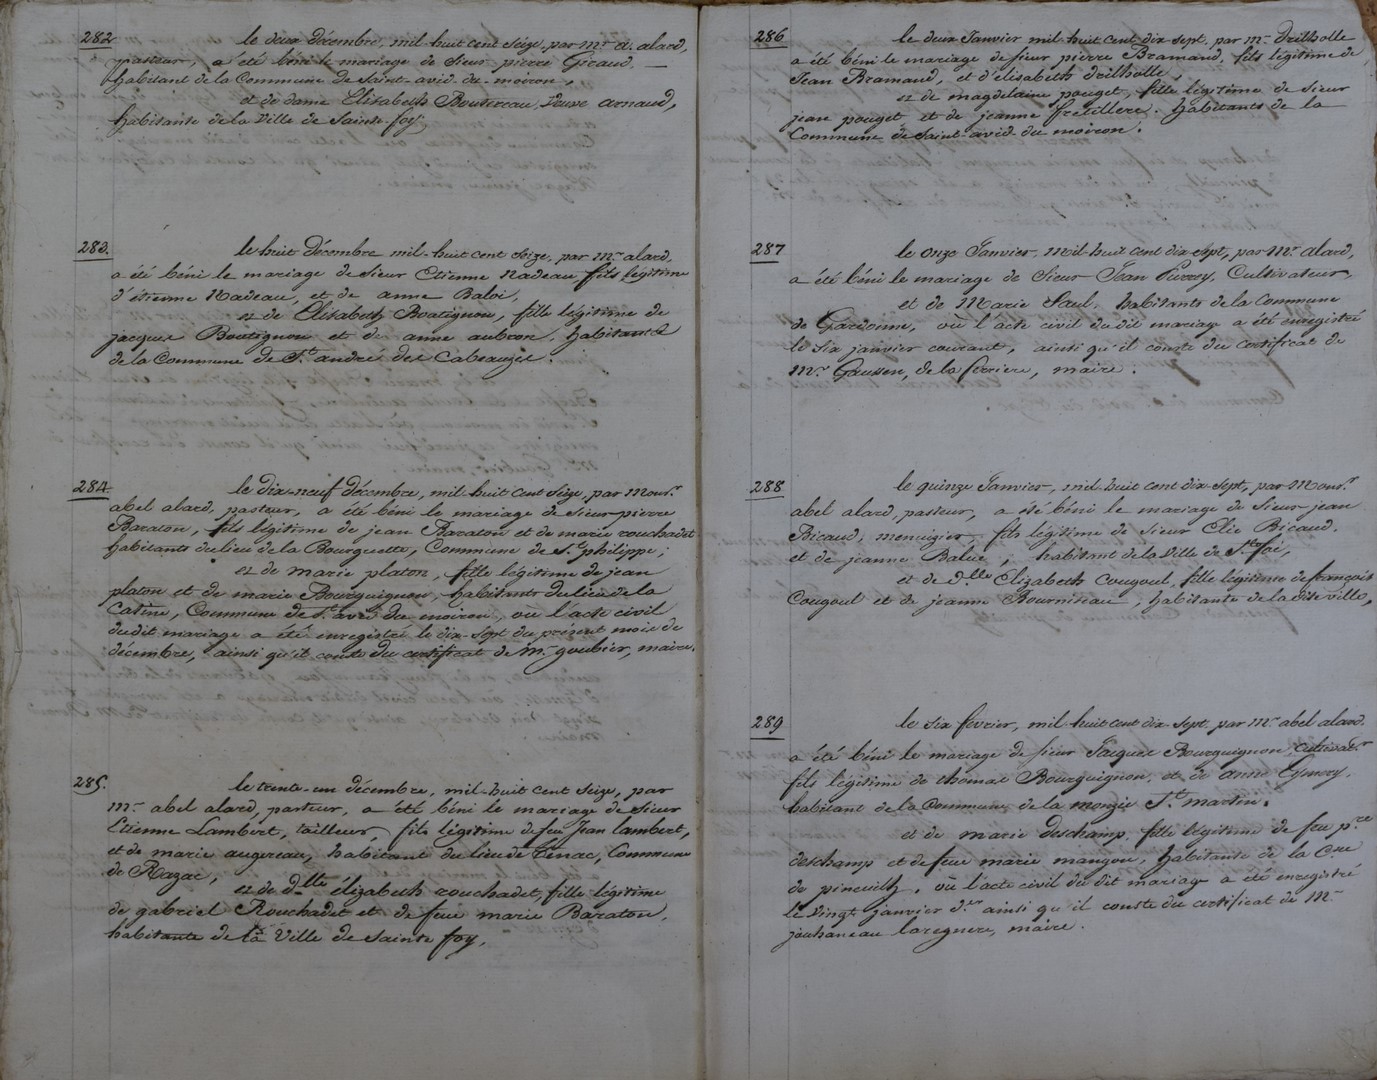 282
le deux décembre, mil-huit cent seize, par mr. a. alard,
pasteur, a été béni le mariage de Sieur pierre Giraud,
habitant de la Commune de Saint-avid-du-moiron,
et de dame Elisabeth Boutireau, veuve arnaud,
habitante de la ville de Sainte-foy.
283.
le huit décembre mil-huit cent seize, par mr. alard,
a été béni le mariage de Sieur Etienne Nadeau, fils légitime
d'étienne Nadeau, et de anne Baloi,
et de Elisabeth Boutignon, fille légitime de
jacques Boutignon et de anne aubron, habitants
de la Commune de St. andré des Cabeauzie.
284.
le dix-neuf décembre, mil-huit cent seize, par Monsr.
abel alard, pasteur, a été béni le mariage de Sieur pierre
Baraton, fils légitime de jean Baraton et de marie rouchadet
habitants du lieu de la Bourguette, Commune de St. philippe;
et de marie platon, fille légitime de jean
platon et de marie Bourguignon, habitants du lieu de la
Catine, Commune de St. avid du moiron, où l'acte civil
du dit mariage a été enregistré le dix-sept du présent mois de
décembre, ainsi qu'il conste du certificat de Mr. goubier, maire.
285.
le trente-un décembre, mil-huit cent seize, par
Mr. abel alard, pasteur, a été béni le mariage de Sieur
Etienne Lambert, tailleur, fils légitime de feu Jean lambert,
et de marie augereau, habitant du lieu de Tenac, Commune
de Razac,
et de dlle élizabeth rouchadet, fille légitime
de gabriel Rouchadet et de feue marie Baraton,
habitante de la Ville de Sainte foy,
286
le deux Janvier mil-huit cent dix-sept, par mr. Drilholle
a été béni le mariage de sieur pierre Bramaud, fils légitime de
Jean Bramaud, et d'élisabeth drilholle,
et de magdelaine pouget, fille légitime de sieur
jean pouget et de jeanne fretillere. habitants de la
Commune de Saint avid du moiron.
287
le onze Janvier, mil-huit cent dix-sept, par Mr. alard,
a été béni le mariage de Sieur Jean Purrey, Cultivateur,
et de Marie Saul, habitants de la Commune
de Gardonne, où l'acte civil du dit mariage a été enregistré
le six janvier courant, ainsi qu'il conste du certificat de
Mr. Gaussen, de la ferriere, maire.
288
le quinze Janvier, mil-huit cent dix-sept, par Monsr.
abel alard, pasteur, a été béni le mariage de Sieur jean
Bicaud, menuzier, fils légitime de Sieur Elie Bicaud,
et de jeanne Balue, habitant de la Ville de Ste foi,
et de dlle Elizabeth Cougoul, fille légitime de françois
Cougoul et de jeanne Bourniseau, habitante de la dite ville,
289
le six février, mil-huit cent dix-sept, par Mr. abel alard.
a été béni le mariage de sieur Jacques Bourguignon, cultivatr.
fils légitime de thomas Bourguignon, et de anne Eymery,
habitant de la Commune de la monzie St. martin.
et de marie deschamp, fille légitime de feu pre
deschamp et de feue marie mangou, habitante de la Cne
de pineuilh, où l'acte civil du dit mariage a été enregistré
le vingt janvier der. ainsi qu'il conste du certificat de Mr.
jouhaneau laregnere, maire.